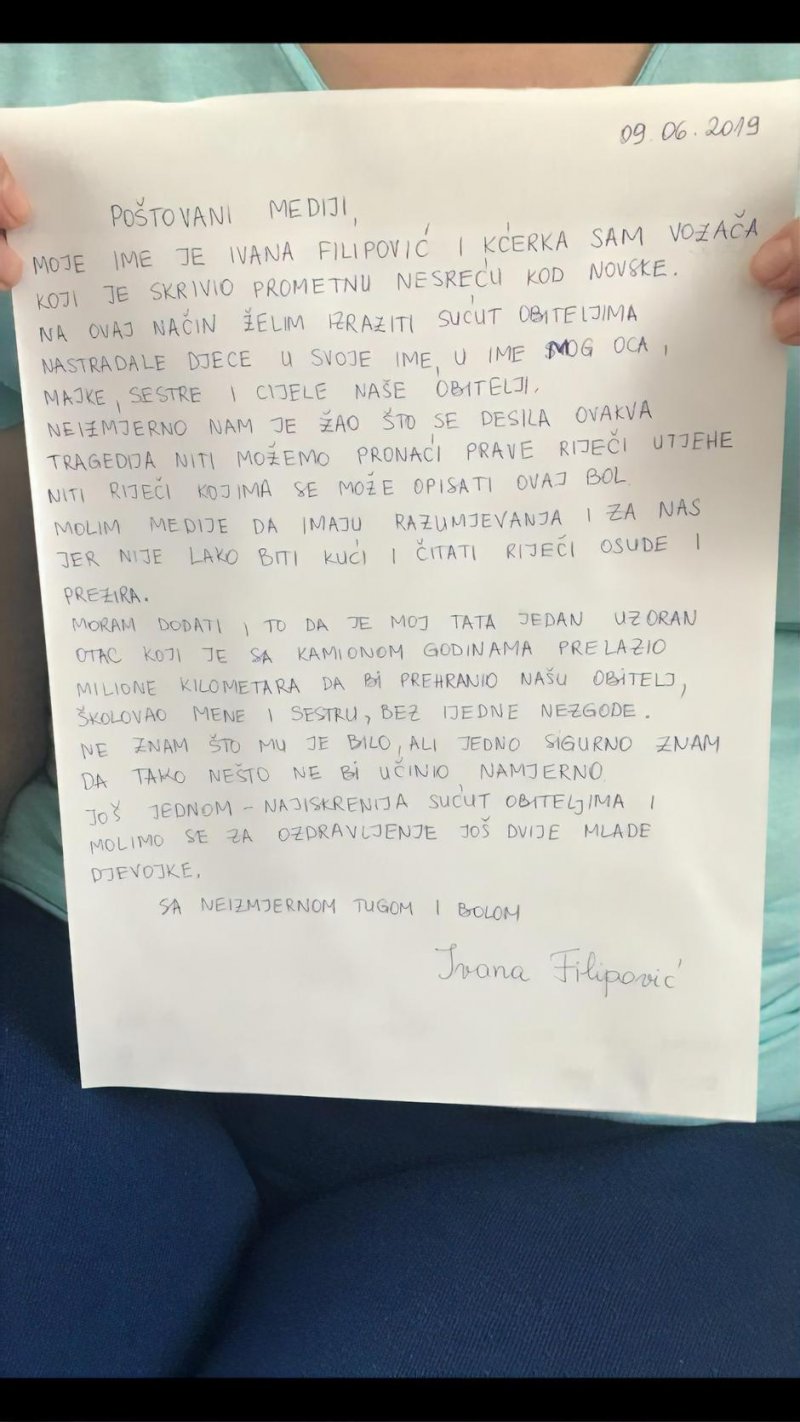 09.06.2019
POŠTOVANI MEDIJI,
MOJE IME JE IVANA FILIPOVIĆ I KĆERKA SAM VOZAČA
KOJI JE SKRIVIO PROMETNU NESREĆU KOD NOVSKE.
NA OVAJ NAČIN ŽELIM IZRAZITI SUĆUT OBITELJIMA
NASTRADALE DJECE U SVOJE IME, U IME MOG OCA,
MAJKE, SESTRE I CIJELE NAŠE OBITELJI.
NEIZMJERNO NAM JE ŽAO ŠTO SE DESILA OVAKVA
TRAGEDIJA NITI MOŽEMO PRONAĆI PRAVE RIJEČI UTJEHE
NITI RIJEČI KOJIMA SE MOŽE OPISATI OVAJ BOL.
MOLIM MEDIJE DA IMAJU RAZUMJEVANJA I ZA NAS
JER NIJE LAKO BITI KUĆI I ČITATI RIJEČI OSUDE I
PREZIRA.
MORAM DODATI I TO DA JE MOJ TATA JEDAN UZORAN
OTAC KOJI JE SA KAMIONOM GODINAMA PRELAZIO
MILIONE KILOMETARA DA BI PREHRANIO NAŠU OBITELJ,
ŠKOLOVAO MENE I SESTRU, BEZ IJEDNE NEZGODE.
NE ZNAM ŠTO MU JE BILO, ALI JEDNO SIGURNO ZNAM
DA TAKO NEŠTO NE BI UČINIO NAMJERNO.
JOŠ JEDNOM - NAJISKRENIJA SUĆUT OBITELJIMA I
MOLIMO SE ZA OZDRAVLJENJE JOŠ DVIJE MLADE
DJEVOJKE.
SA NEIZMJERNOM TUGOM I BOLOM
Ivana Filipović